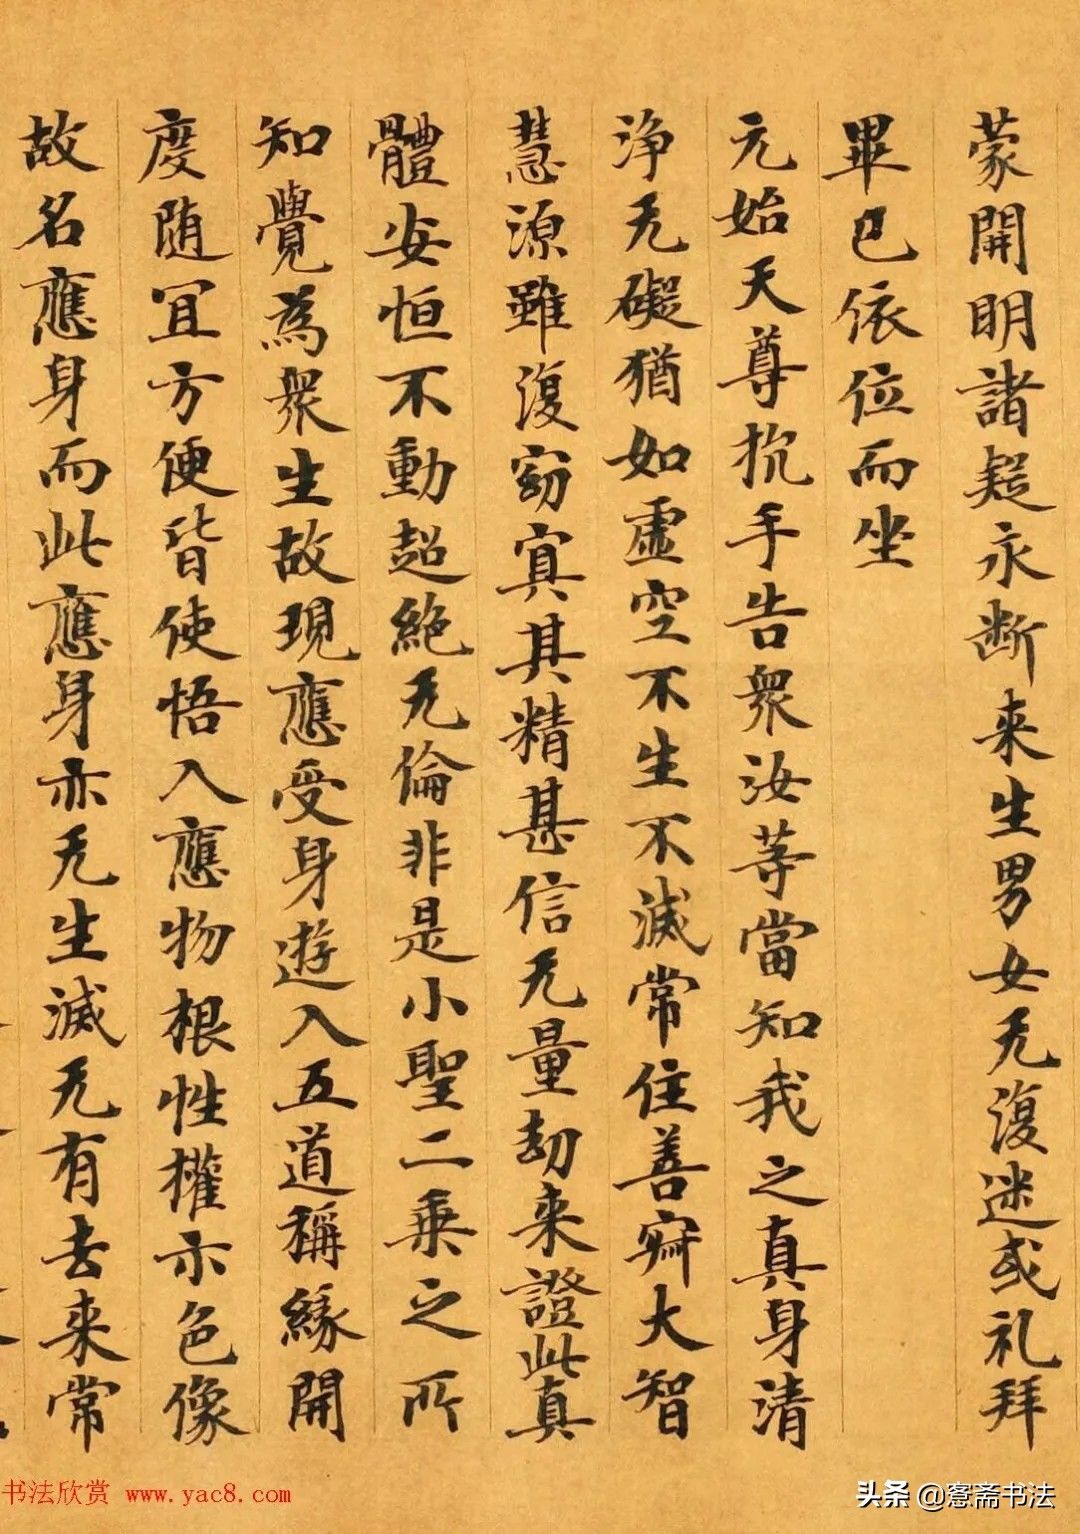 蒙開明諸疑永断来生男女无復迷或礼拜
畢已依位而坐
元始天尊抗手告衆汝等當知我之真身清
浄无礙猶如虛空不生不滅常住善寂大智
慧源雖復窈冥其精甚信无量劫来證此真
體安恒不動超絶无倫非是小聖二乗之所
知覺為衆生故現應受身遊入五道稱緣開
度随宜方便皆使悟入應物根性權示色像
故名應身而此應身亦无生滅无有去来常
书法欣赏 www.yac8.com
头条 @愙斋书法